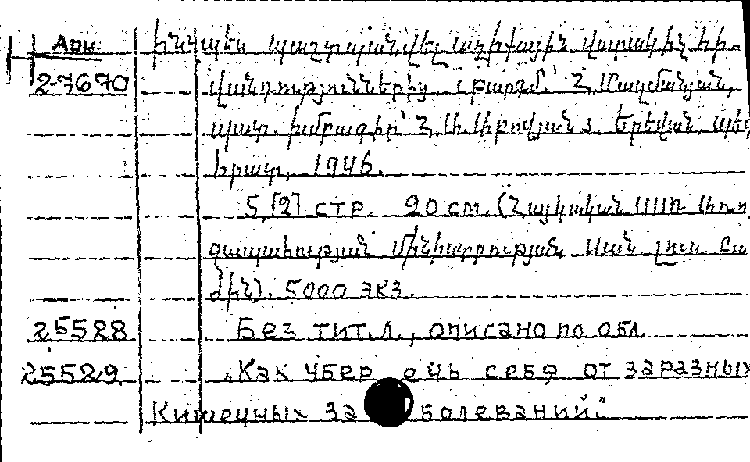 Арм. Ինչպես պաշտպանվել աղիքային վարակիչ հի-
2-7670 վանդություններից. Թարգմ. Հ. Մաշմանյան,
պատ. խմբագիր՝ Հ. Երևան, պետ
հրատ, 1946.
5, [2] стр. 20 см. (Հայկական ՍՍՌ Առո
ղջապահության Մինիստրության Սան. լուս. Բա
ժին). 5000 экз.
25528 Без тит. л., описано по обл.
25529 „Как убер ечь себя от заразных
Кишечных за болеваний."